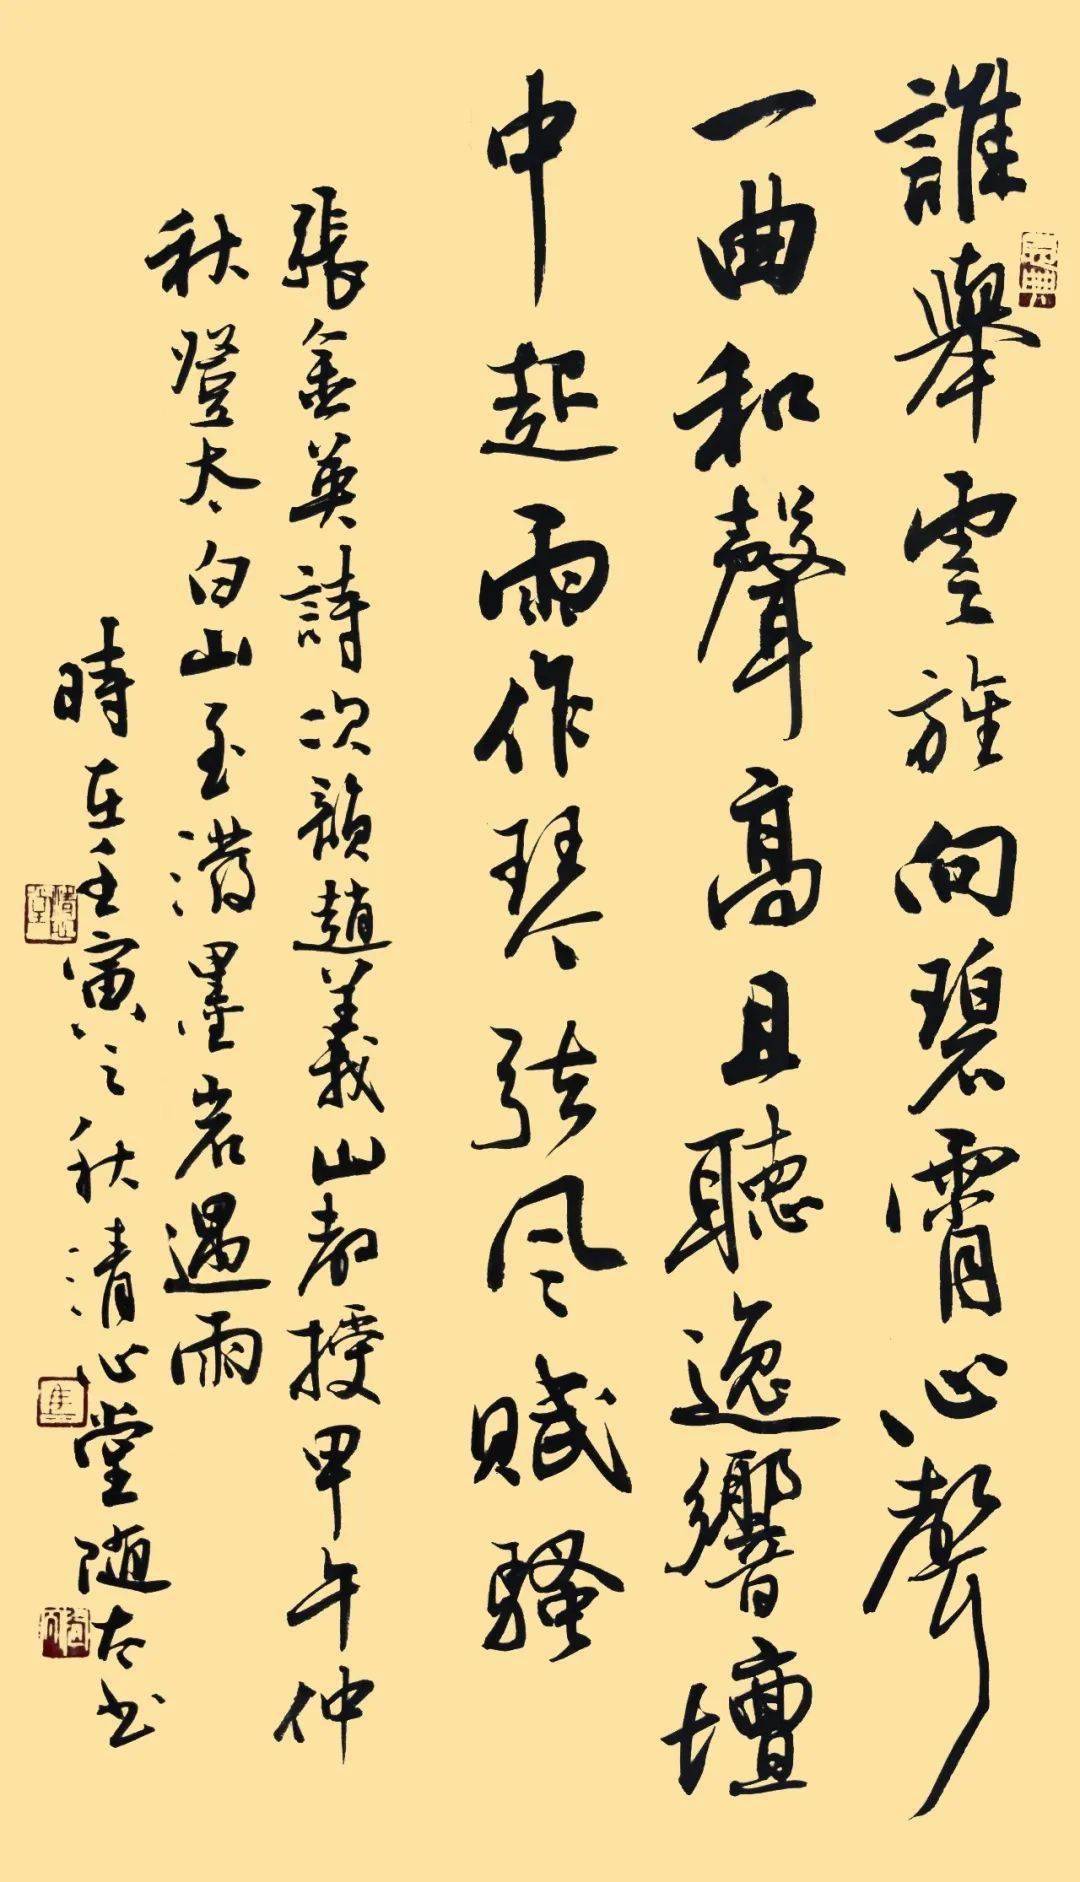 誰舉雲旌向碧霄心聲
一曲和聲高且聽逸響壇
中起雨作琴弦风賦騷
張金英詩次韻趙義山教授甲午仲
秋登太白山至潑墨岩遇雨
時在壬寅之秋清心堂随书